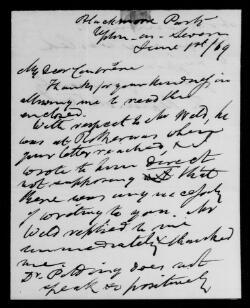 Blackmore Park
Upton-on-Severn
June 1st/69
My dear
Thanks for your kindness in
allowing me to read the
enclosed.
With respect to Mr Weld, he
was at Rotherwas where
your letter reached &
wrote to him direct
not supposing that
there was any necessity
of writing to you. Mr
Weld replied to me
immediately & thanked
me.
Dr. Polding does not
speak so positively